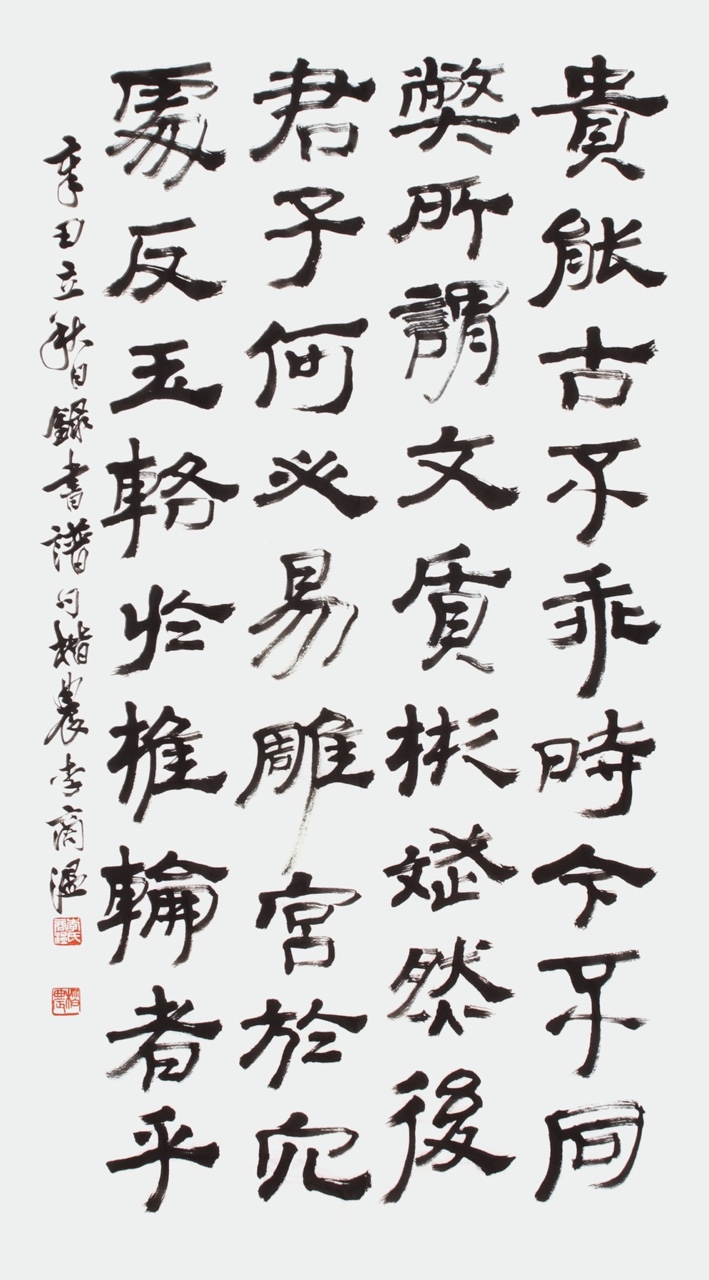 貴能古不乖時今不同
弊所謂文質彬斌然後
君子何必易雕宮於穴
處反玉輅於椎輪者乎
辛丑立秋日錄書譜句楷農李商